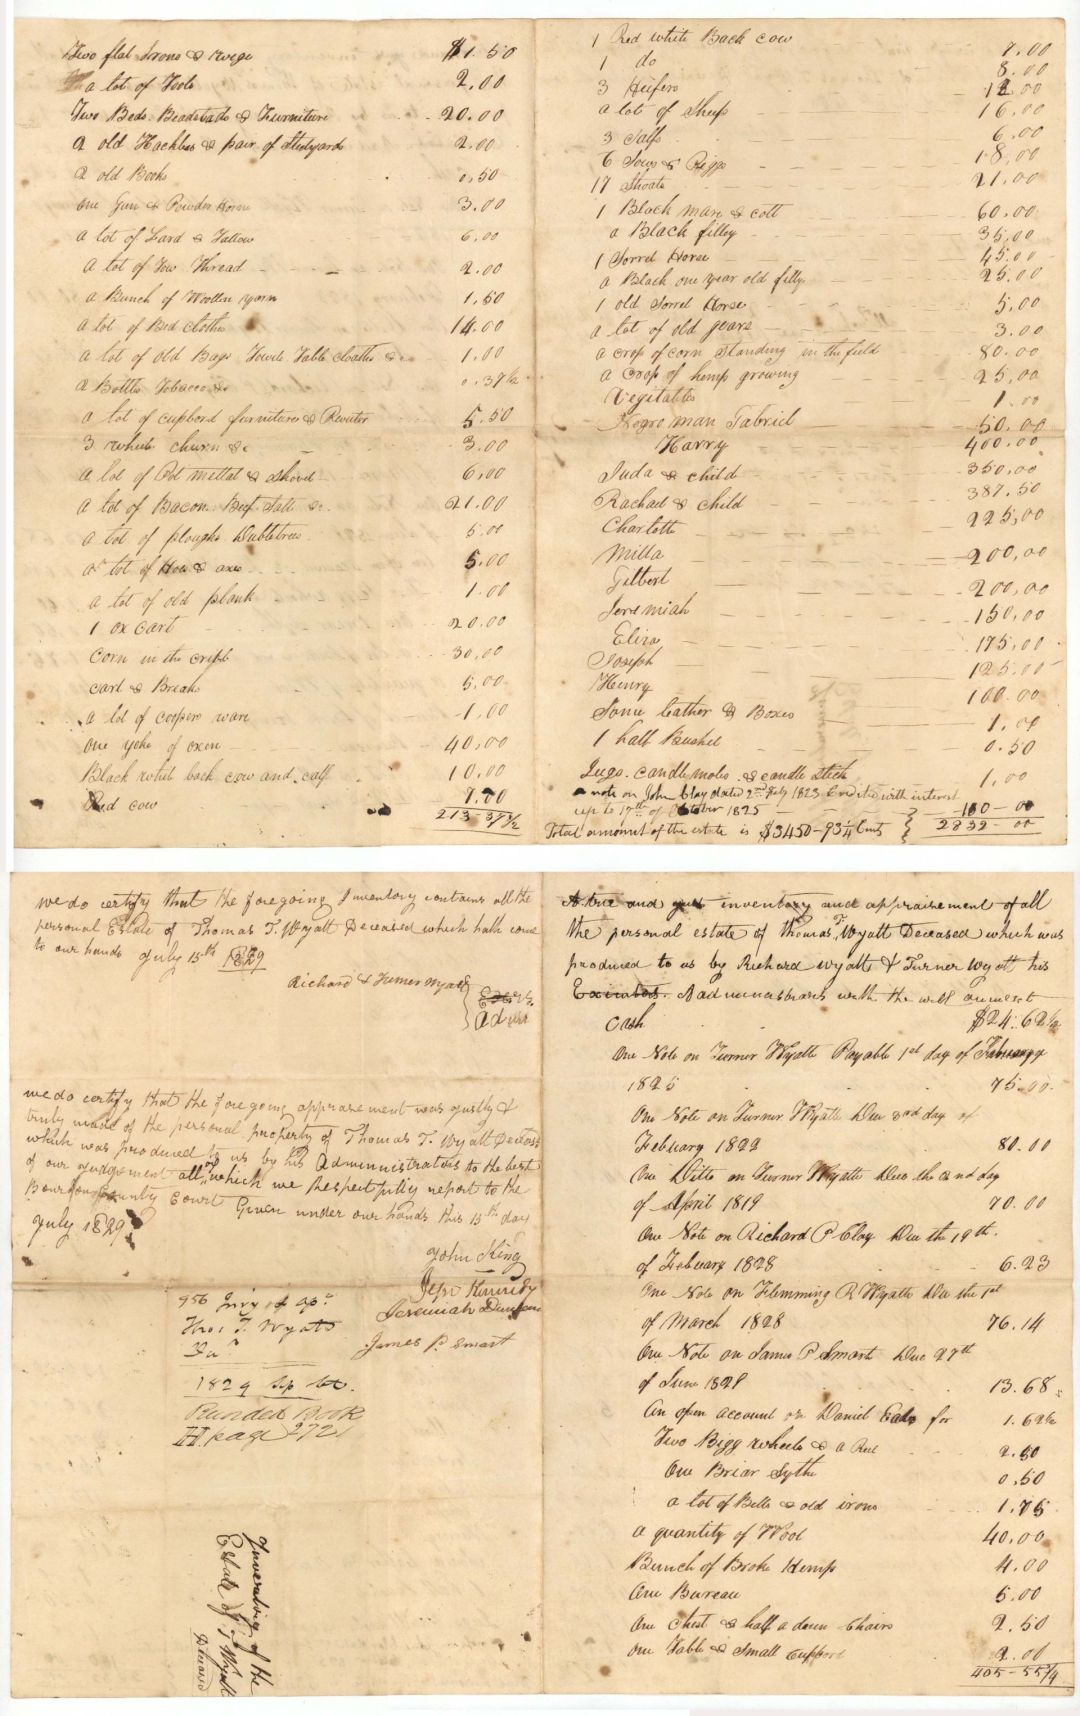 Two flat Irons & wege $1.50
a lot of Tools 2.00
Two Beds. Beadstads & Furniture 20.00
2 old Hackles & pair of Stelyards 2.00
2 old Books 0.50
one Gun & Powder Horn 3.00
a lot of Lard & Tallow 6.00
a lot of Tow Thread 2.00
a Bunch of Woollen yarn 1.50
a lot of Bed clothes 14.00
a lot of old Bags Towels Table cloaths &c 1.00
2 Bottles Tobacco &c 0.37½
a lot of cupbord furniture & Pewter 5.50
3 wheels churn &c 3.00
a lot of Pot mettal & shovel 6.00
a lot of Bacon. Beef. Salt &c. 21.00
a lot of ploughs Dubletrees 5.00
a lot of Hoes & axes 5.00
a lot of old plank 1.00
1 ox cart 20.00
Corn in the cribb 30.00
cart & Breaks 5.00
a lot of coopers ware 1.00
one yoke of oxen 40.00
Black whit back cow and calf 10.00
Red cow 7.00
213-37½
1 Red white Back cow 7.00
1 do 8.00
3 Heifers 12.00
a lot of Sheep 16.00
3 Calfs 6.00
6 Sows & Piggs 18.00
17 Shoats 21.00
1 Black mare & colt 60.00
a Black filley 35.00
1 Sorrel Horse 45.00
a Black one year old filly 25.00
1 old Sorrel Horse 5.00
a lot of old gears 3.00
a crop of corn standing in the field 80.00
a crop of hemp growing 25.00
Vegitables 1.00
Negro man Gabriel 50.00
Harry 400.00
Juda & child 350.00
Rachael & child 387.50
Charlotte 225.00
Milla 200.00
Gilbert 200.00
Jeremiah 150.00
Eliza 175.00
Joseph 125.00
Henry 100.00
Some leather & Boxes 1.00
1 half Bushel 0.50
Jugs. candlemoles & candle stick 1.00
a note on John Clay dated 2nd July 1823 Credited with interest
up to 17th of October 1825 100-00
2832-00
Total amount of the estate is $3450-93¼ Cents
we do certify that the foregoing Inventory contains all the
personal Estate of Thomas T. Wyatt Deceased which hath come
to our hands July 15th 1829
Richard & Turner Wyatt
Exers.
Admr
we do certify that the foregoing appraisement was justly &
truly made of the personal property of Thomas T. Wyatt Deceas
which was produced to us by his Administrators to the best
of our judgement all of which we Respectfully report to the
Bourbon County Court Given under our hands this 15th day
July 1829
John King
Jesse Kennedy
Jeremiah Duncan
James P. Smart
956 Invy & ap.
Thos T. Wyatts
1829 Sep ct.
Recorded Book
H. page 272
Inventory of the
Estate of T Wyatt
Deceased
A true and just inventory and appraisement of all
the personal estate of Thomas T. Wyatt Deceased which was
produced to us by Richard Wyatt & Turner Wyatt his
Executors. Aadministrators with the will annext
Cash $24.62½
One Note on Turner Wyatt Payable 1st day of February
1825 75.00
One Note on Turner Wyatt Due 3rd day of
February 1822 80.00
One Ditto on Turner Wyatt Due the 2nd day
of April 1819 70.00
One Note on Richard P Clay Due the 19th.
of February 1828 6.23
One Note on Flemming R Wyatt Due the 1st
of March 1828 76.14
One Note on James P Smart Due 27th
of June 1829 13.68
An open account on Daniel Eals for 1.62½
Two Bigg wheels & a Reel 2.50
One Briar Sythe 0.50
a lot of Bells & old irons 1.75
a quantity of Wool 40.00
Bunch of Broke Hemp 4.00
One Bureau 5.00
One Chest & half a dozen chairs 2.50
one Table & Small cupbord 2.00
405-55¾